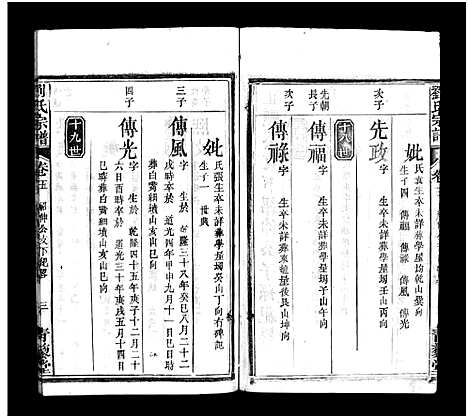 劉氏宗譜
卷三
妣
氏袁生卒未詳葬學屋塆乾山巽向
生子四 傳福 傳祿 傳風 傳光
次子
先政
生卒未詳葬學屋塆壬山丙向
十八世
先朝長子
傳福
字 生卒未詳葬學屋塆子山午向
次子
傳祿
字 生卒未詳葬東邊屋後艮山坤向
妣
氏張生卒未詳葬學屋塆癸山丁向有碑記
生子一 世典
三子
傳風
字 生於乾隆三十八年癸巳八月二十二
戌時卒於道光四年甲申九月十一日巳時
葬白鷺細墳山亥山巳向
四子
傳光
字 生於乾隆四十五年庚子十二月二十
六日酉時卒於道光三十年庚戌五月十四日
時葬白鷺細墳山亥山巳向
十九世
劉氏宗譜
卷五
三
青藜堂